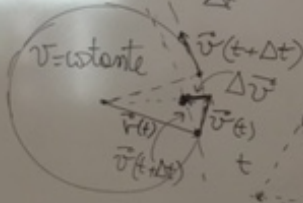 Δt
v=costante
v⃗(t+Δt)
Δv⃗
v⃗(t)
v⃗(t)
v⃗(t+Δt)
t